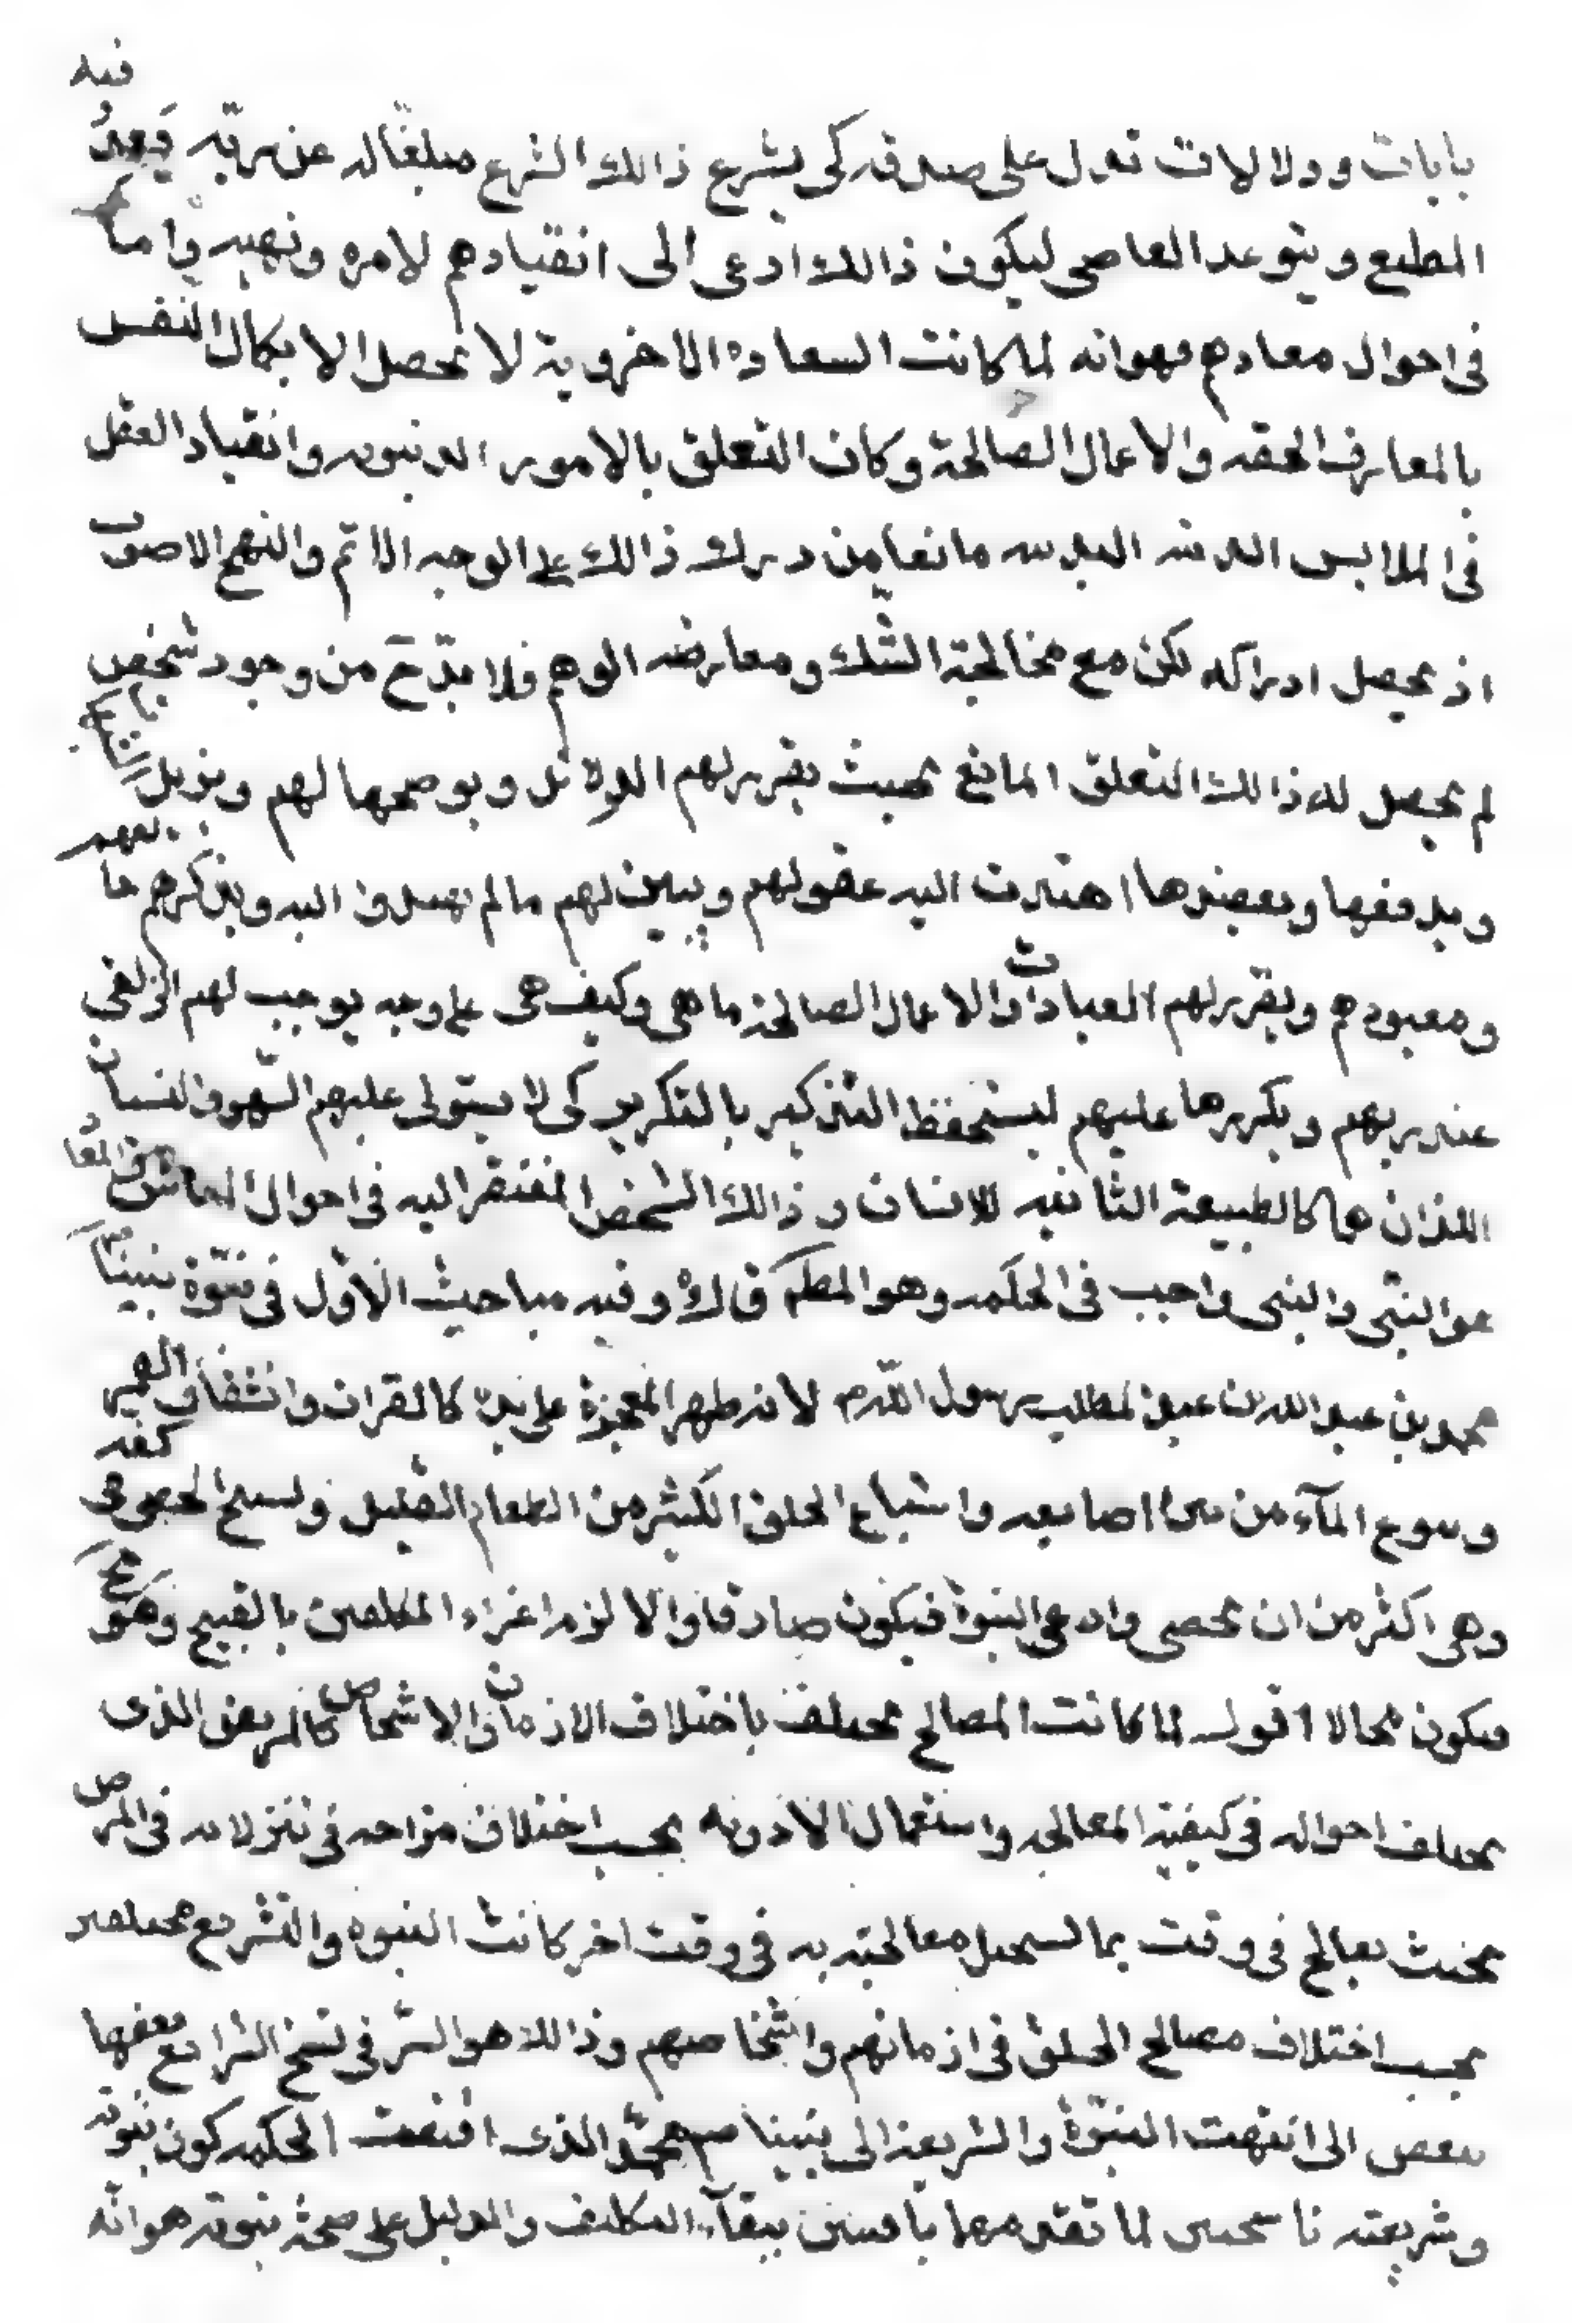 فيه
بايات ودلالات تدل على صدقه كى يشرع ذالك الشرع مبلغا له عن ربه يعد
المطيع ويتوعد العاصى ليكون ذالك ادعى الى انقيادهم لامره ونهيه واما
فى احوال معادهم فهو انه لما كانت السعاده الاخروية لا تحصل الا بكمال النفس
بالمعارف الحقه والاعمال الصالحة وكان التعلق بالامور الدنيويه وانقياد العقل
فى الملابس الدنيه البدنيه مانعا من درك ذالك على الوجه الاتم والنهج الاصوب
اذ يحصل ادراكه لكن مع مخالجة الشك ومعارضه الوهم فلا بد ح من وجود شخص
لم يحصل له ذالك التعلق المانع بحيث يقرر لهم الدلائل ويوضحها لهم ويزيل الشبهات
ويدفعها ويعضد ما اهتدت اليه عقولهم ويبين لهم مالم يهتدوا اليه ويذكرهم خالقهم
ومعبودهم ويقرر لهم العبادات والاعمال الصالحة ماهى وكيف هى على وجه يوجب لهم الزلفى
عند ربهم ويكررها عليهم ليستحفظ التذكير بالتكرير كى لا يستولى عليهم السهو والنسيان
اللذان هما كالطبيعة الثانيه للانسان و ذالك الشخص المفتقر اليه فى احوال المعاش والمعاد
هو النبى والنبى واجب فى الحكمه وهو المطم قال وفيه مباحث الاول فى نبوة نبينا
محمد بن عبد الله بن عبد المطلب رسول الله م لانه ظهر المعجزة على يده كالقران وانشقاق القمر
ونبوع المآء من بين اصابعه واشباع الخلق الكثير من الطعام القليل وتسبيح الحصى فى كفه
وهى اكثر من ان تحصى وادعى النبوة فيكون صادقا والا لزم اغراء المكلفين بالقبيح وهو مح
فيكون محالا اقول لما كانت المصالح تختلف باختلاف الازمان والاشخاص كالمريض الذى
تختلف احواله فى كيفية المعالجه واستعمال الادويه بحسب اختلاف مزاجه فى تنزلاته فى المرض
بحيث يعالج فى وقت بما يستحيل معالجته به فى وقت اخر كانت النبوه والتشريع مختلفين
بحسب اختلاف مصالح الخلق فى ازمانهم واشخاصهم وذالك هو السر فى نسخ الشرايع بعضها
ببعض الى انتهت النبوة والشريعة الى نبينا محمد صم الذى اقتضت الحكمه كون نبوته
وشريعته ناسختين لما تقدمهما باقيتين ببقآء التكليف والدليل على صحة نبوته هو انه